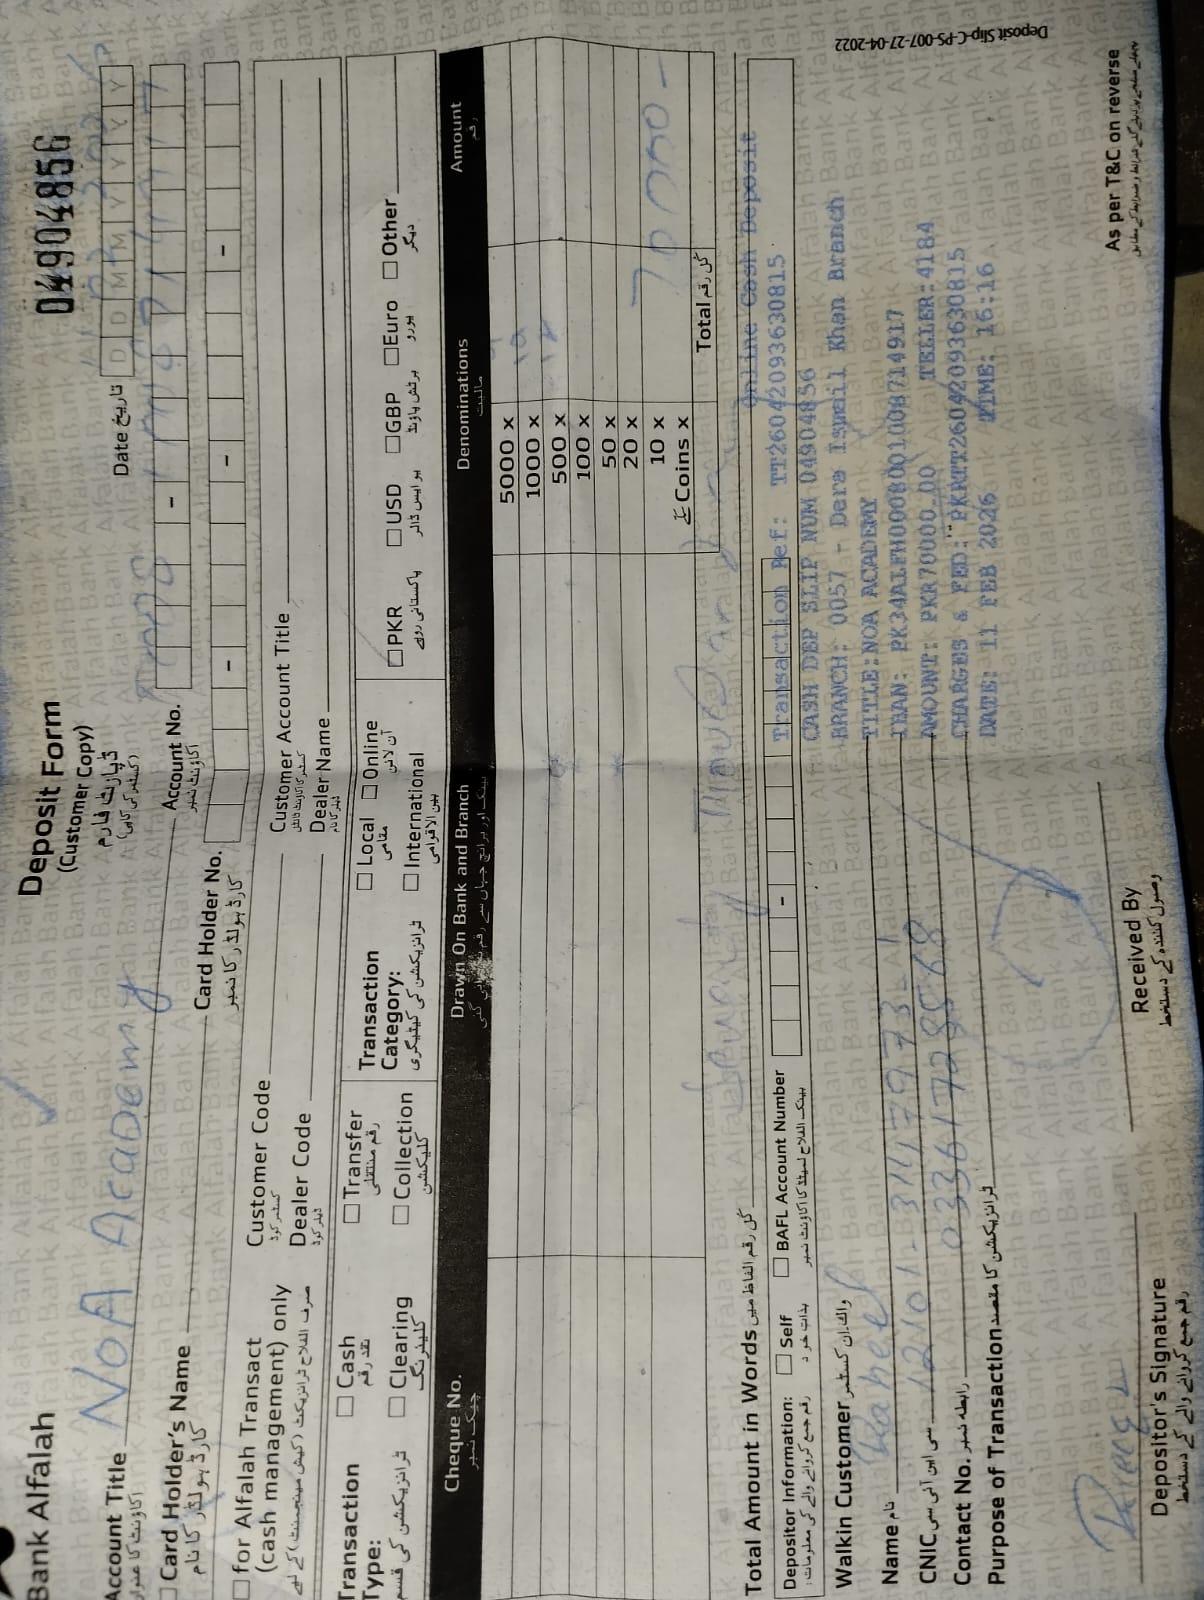 Bank Alfalah
Deposit Form
(Customer Copy)
ڈپازٹ فارم
(کسٹمر کی کاپی)
04904856
Date تاریخ D D M M Y Y Y Y
Account Title NOA Academy
اکاؤنٹ کا عنوان
Account No.
اکاؤنٹ نمبر
Card Holder's Name
کارڈ ہولڈر کا نام
Card Holder No.
کارڈ ہولڈر کا نمبر
for Alfalah Transact
(cash management) only
Customer Code
کسٹمر کوڈ
Customer Account Title
Dealer Code
ڈیلر کوڈ
Dealer Name
ڈیلر کا نام
Transaction
Type:
ٹرانزیکشن کی قسم
Cash
نقد رقم
Transfer
رقم منتقلی
Clearing
کلیئرنگ
Collection
کلیکشن
Transaction
Category:
ٹرانزیکشن کی کیٹیگری
Local
مقامی
Online
آن لائن
International
بین الاقوامی
PKR
پاکستانی روپے
USD
یو ایس ڈالر
GBP
برٹش پاؤنڈ
Euro
یورو
Other
دیگر
Cheque No.
چیک نمبر
Drawn On Bank and Branch
Denominations
مالیت
Amount
رقم
5000 x
1000 x
500 x
100 x
50 x
20 x
10 x
سکے Coins x
Total کل رقم 70000-
Total Amount in Words کل رقم الفاظ میں
Online Cash Deposit
Depositor Information:
رقم جمع کروانے والے کی معلومات:
Self
بذات خود
BAFL Account Number
Transaction Ref: TT26042093630815
CASH DEP SLIP NUM 04904856
Walkin Customer واک ان کسٹمر
BRANCH: 0057 - Dera Ismail Khan Branch
Name نام
TITLE:NOA ACADEMY
CNIC سی این آئی سی
IBAN: PK34ALFH0008001008714917
Contact No. رابطہ نمبر
AMOUNT: PKR70000.00 TELLER:4184
CHARGES & FED: PKRTT26042093630815
Purpose of Transaction ٹرانزیکشن کا مقصد
DATE: 11 FEB 2026 TIME: 16:16
Depositor's Signature
رقم جمع کروانے والے کے دستخط
Received By
وصول کنندہ کے دستخط
As per T&C on reverse
Deposit Slip-C-PS-007-27-04-2022